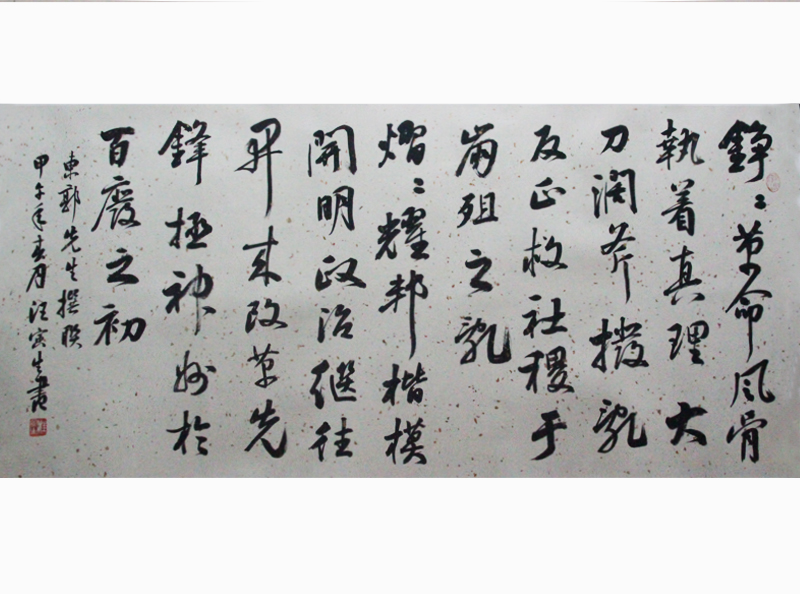 錚々革命风骨
執着真理大
刀阔斧撥亂
反正救社稷于
崩殂之亂
熠々耀邦楷模
開明政治繼往
开来改革先
鋒拯神州於
百廢之初
東郭先生撰联
甲午年春月汪寅生書